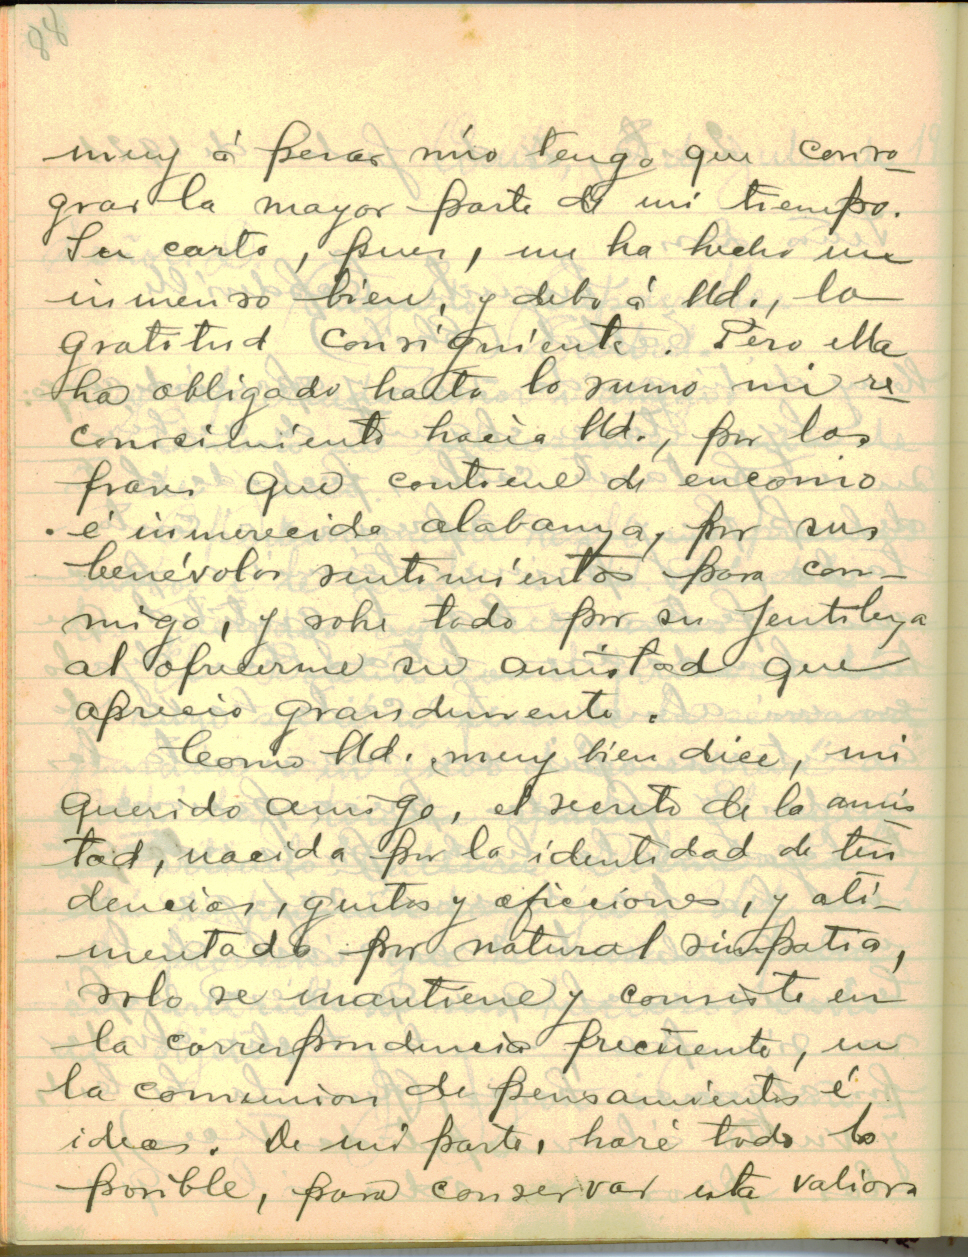 84
muy á pesar mío tengo que consa-
grar la mayor parte de mi tiempo.
Su carta, pues, me ha hecho un
inmenso bien, y debo á Ud., la
gratitud consiguiente. Pero ella
ha obligado hasta lo sumo mi re-
conocimiento hacia Ud., por las
frases que contiene de encomio
é inmerecida alabanza, por sus
benévolos sentimientos para con-
migo, y sobre todo por su jentileza
al ofrecerme su amistad que
aprecio grandemente.
Como Ud. muy bien dice, mi
querido amigo, el secreto de la amis-
tad, nacida por la identidad de ten
dencias, gustos y aficciones, y ali-
mentada por natural simpatía,
solo se mantiene y consiste en
la correspondencia frecuente, en
la comunion de pensamientos é
ideas. De mi parte, haré todo lo
posible, para conservar esta valiosa